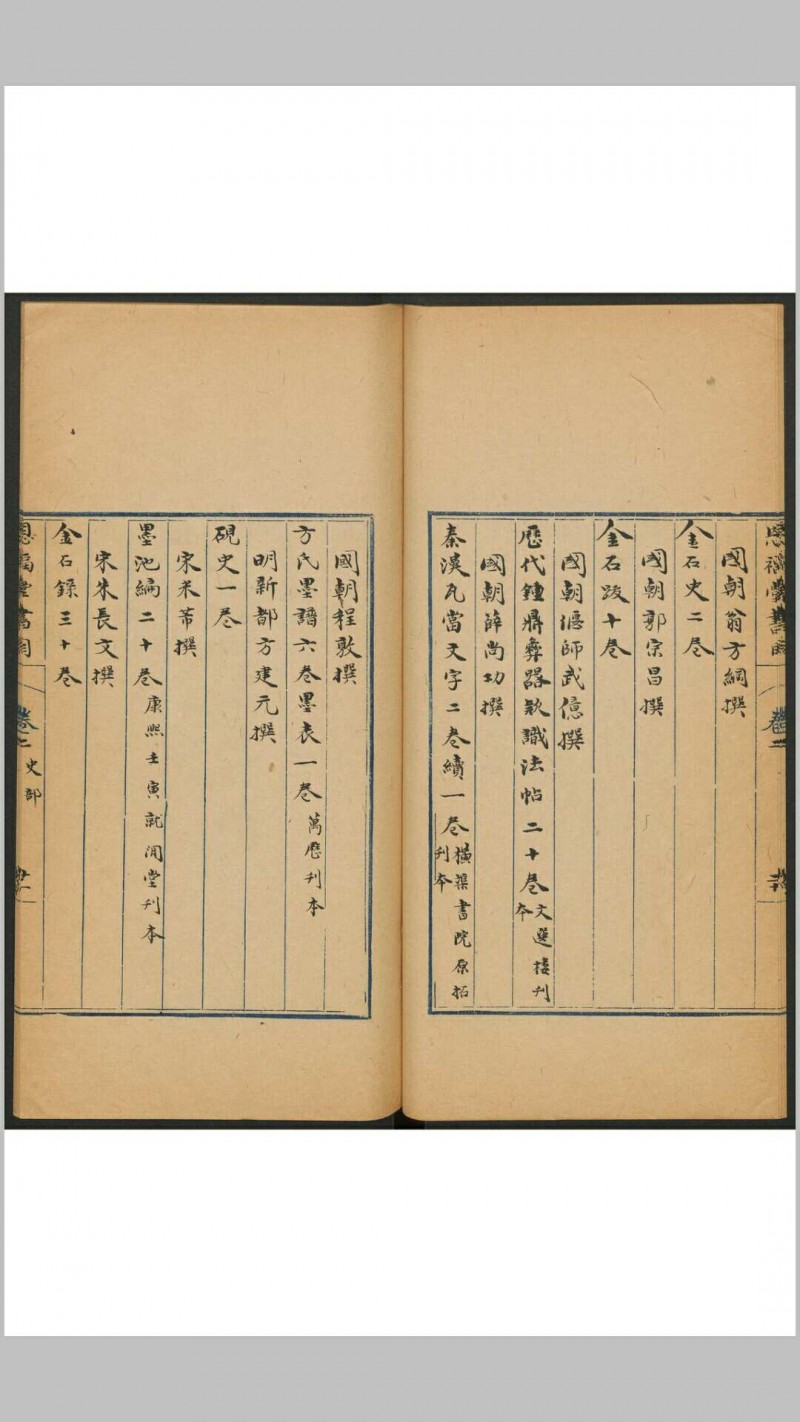 國朝翁方綱撰
金石史二卷
國朝郭宗昌撰
金石跋十卷
國朝偃師武億撰
歷代鍾鼎彝器款識法帖二十卷文選樓刊本
國朝薛尚功撰
秦漢瓦當文字二卷續一卷橫渠書院原拓刊本
國朝程敦撰
方氏墨譜六卷墨表一卷萬歷刊本
明新都方建元撰
硯史一卷
宋米芾撰
墨池編二十卷康熙壬寅就閒堂刊本
宋朱長文撰
金石錄三十卷
恩福堂書目
卷二
史部